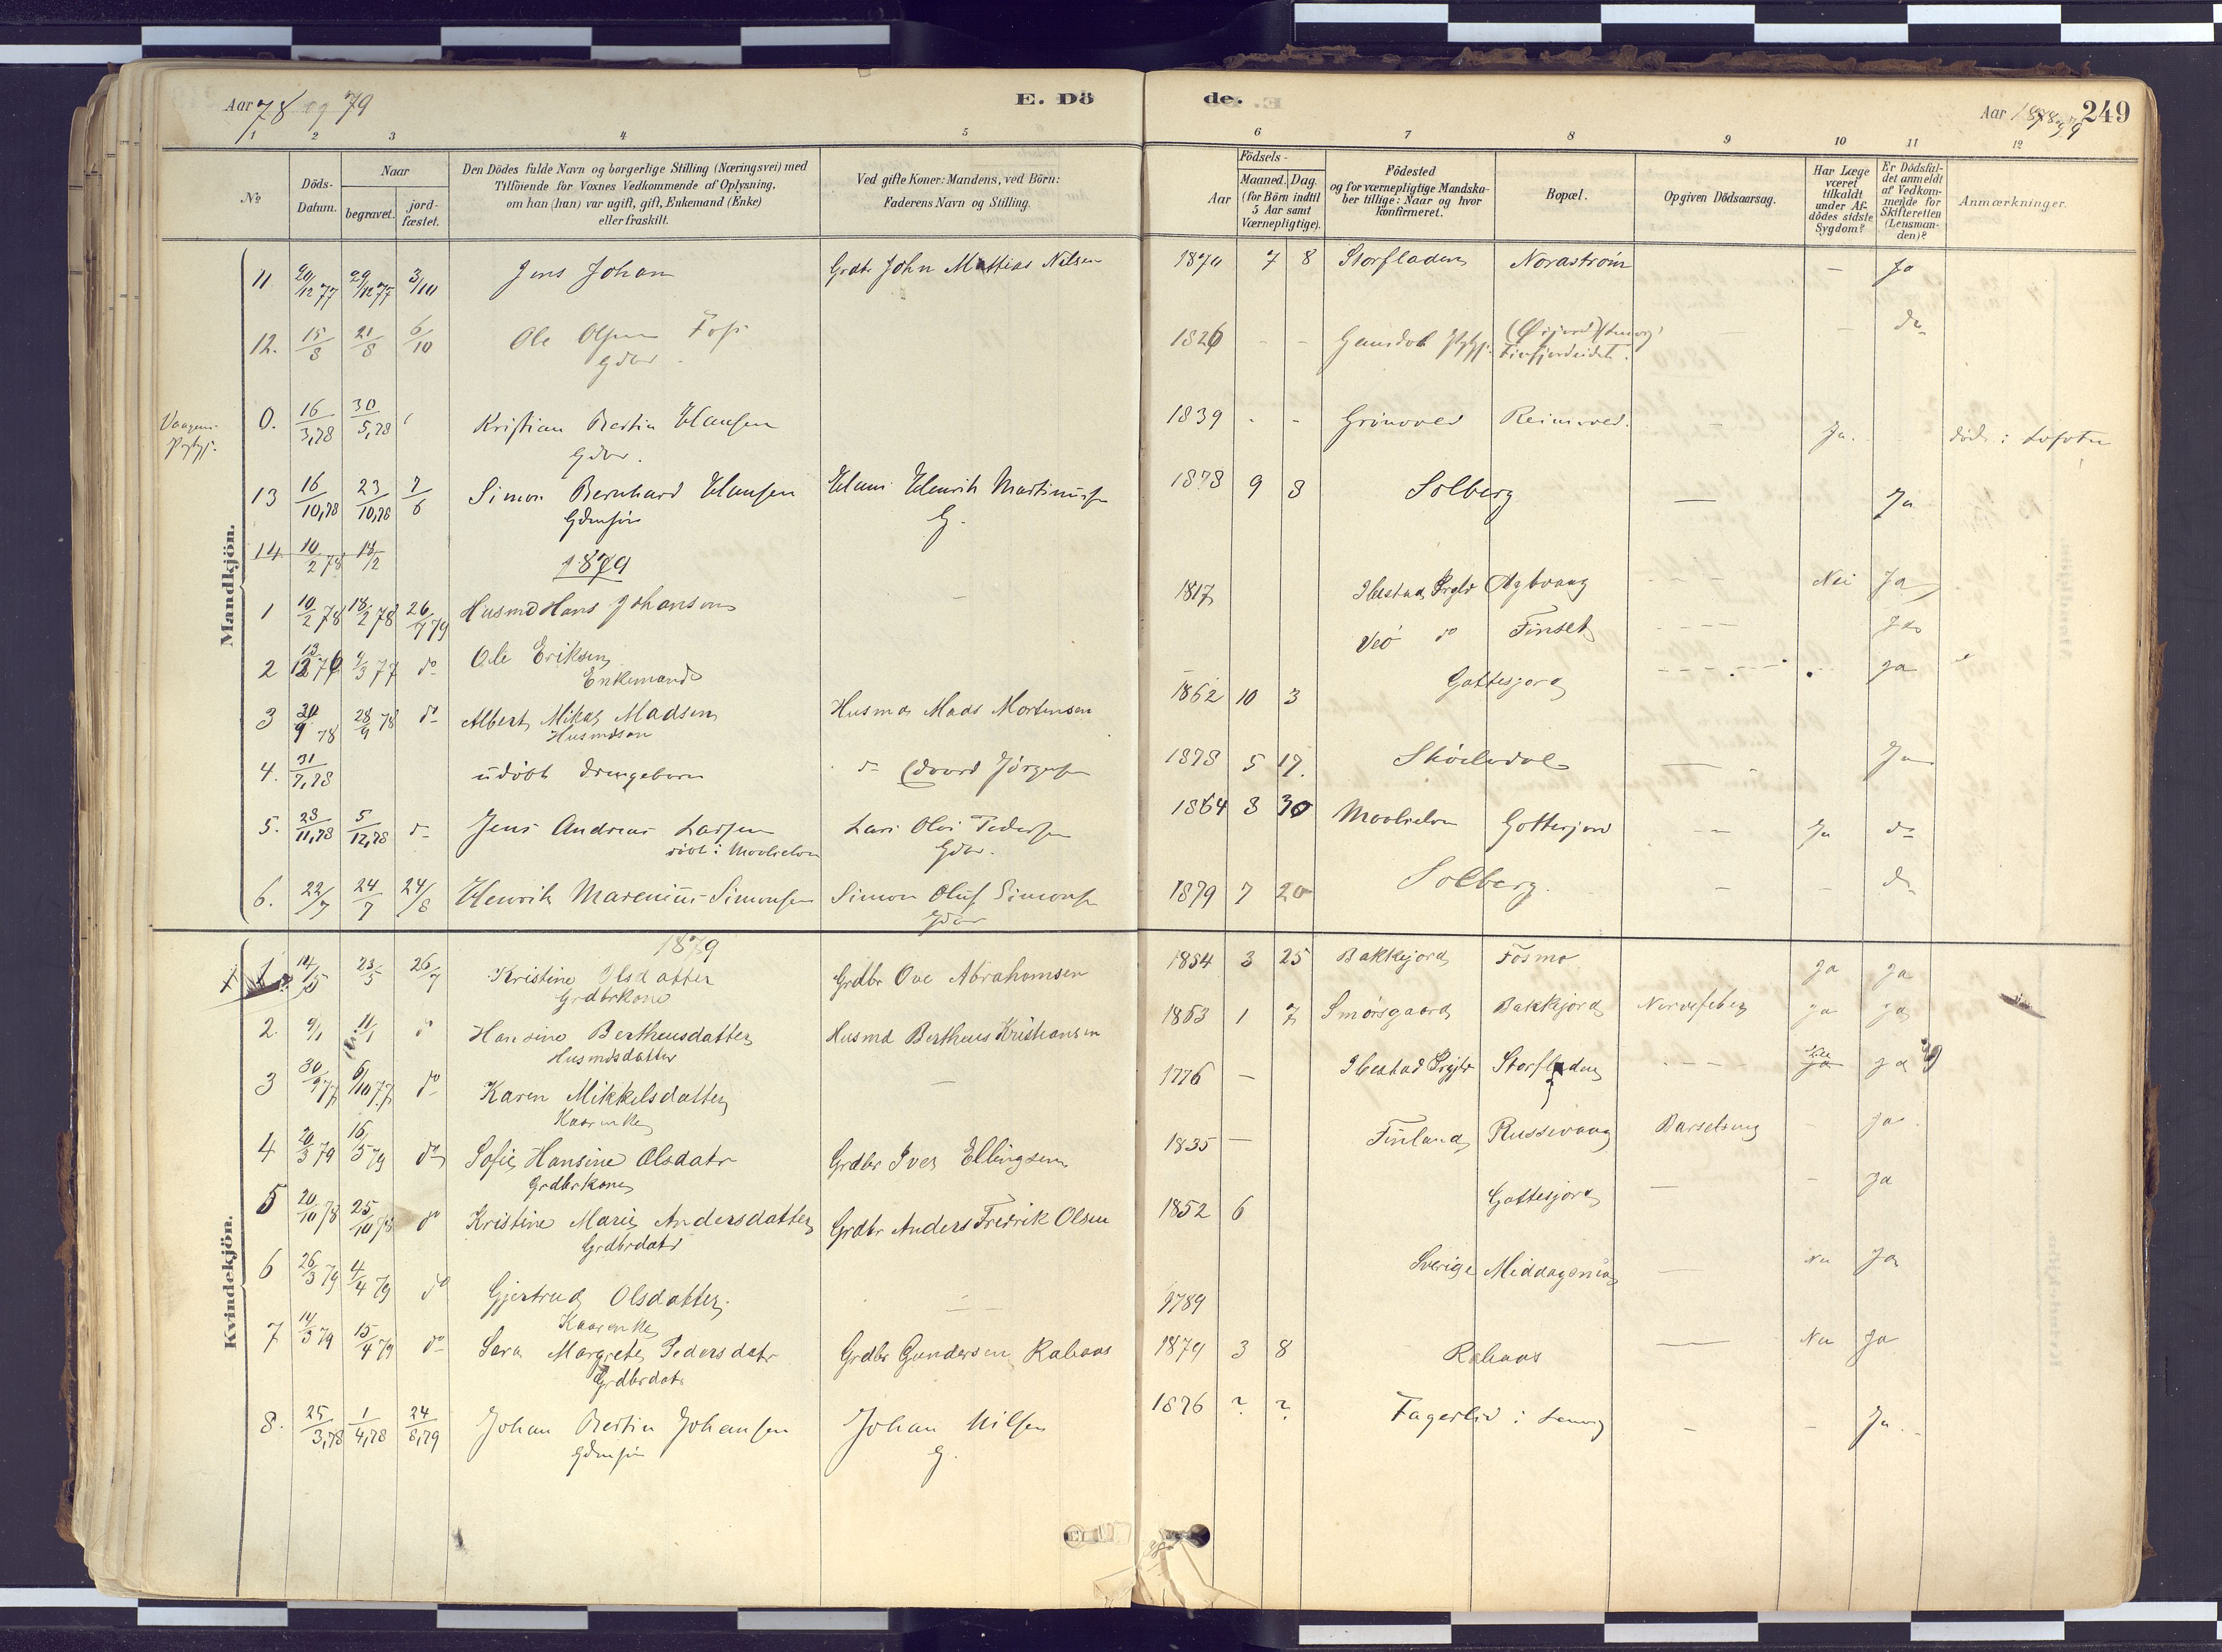 Aar 78 og 79
E. Dö
de.
Aar 1878 og 79
249
1 2 3 4 5 6 7 8 9 10 11 12
No
Döds-Datum.
Naar
begravet.
jord-fæstet.
Den Dödes fulde Navn og borgerlige Stilling (Næringsvei) med
Tilföiende for Voxnes Vedkommende af Oplysning,
om han (hun) var ugift, gift, Enkemand (Enke)
eller fraskilt.
Ved gifte Koner: Mandens, ved Börn:
Faderens Navn og Stilling.
Födsels-
Aar
Maaned. Dag.
(for Börn indtil
5 Aar samt
Værnepligtige).
Födested
og for værnepligtige Mandska-
ber tillige: Naar og hvor
konfirmeret.
Bopæl.
Opgiven Dödsaarsag.
Har Læge
været
tilkaldt
under Af-
dödes sidste
Sygdom?
Er Dödsfal-
det anmeldt
af Vedkom-
mende for
Skifteretten
(Lensman-
den)?
Anmærkninger.
Mandkjön.
11 20/12 77 29/12 77 3/10 Jens Johan Grdbr John Mathias Nilsen 7 8 Storfladen Ja
12. 15/8 21/8 6/10 Ole Olsen Foss 1826 - - do
Gdbr
0. 16/3,78 30/5,78 Kristian Bertin Hansen 1839 - - Ja. död i Lofoten
Gdbr.
13 16/10,78 23/10,78 7/6 Simon Bernhard Hansen Hans Henrik Martinussen 1878 9 8 Solberg Ja
Gdmsön G.
14. 10/2 78 18/2
1879
1 10/2 78 18/2 78 26/7 79 Husmd Hans Johanson 1817 Ibestad Prgld Nei Ja
2 9/3 77 do Ole Eriksen Veö do Finset Ja
Enkemand
3 20/9 78 28/9 78 do Albert Mikal Madsen Husmd Mads Mortensen 1862 10 3 Gottesjord Ja
Husmdsøn
4. 31/7,78 udöbt Drengebarn do Edvard Jörgensen 1878 5 17. Ja
5. 23/11,78 5/12,78 do Jens Andreas Larsen Lars Olai Pedersen 1864 8 30 Moolselven Gottesjord Ja do
död i Moolselven Gdbr.
6. 22/7 24/7 24/8 Henrik Marenius Simonsen Simon Oluf Simonsen 1879 7 20 Solberg. do
Gdbr
Kvindekjön.
1879
1 14/5 23/5 26/7 Kristine Olsdatter Grdbr Ove Abrahamsen 1854 3 25 Bakkejord Fosmo Ja Ja
Grdbrkone
2. 11/1 do Hansine Bertheusdatter Husmd Bertheus Kristiansen 1863 1 7 Smörsgaard Bakkejord Nervefeber ja ja
Husmdsdatter
3 30/9 77 6/10 77 do Karen Mikkelsdatter 1776 Ibestad Prgld Storfladen ja
Kaarenke
4 20/3 79 16/5 79 do Sofie Hansine Olsdatr Grdbr Iver Ellingsen 1835 Finland Russevaag Barselseng ja
Grdbrkone
5 20/10 78 25/10 78 do Kristine Marie Andersdatter Grdbr Anders Fredrik Olsen 1852 6 Gottesjord ja
Grdbrdatr
6 26/3 79 4/4 79 do Gjertrud Olsdatter 1789 Sverige Ja
Kaarenke
7 14/3 79 15/4 79 do Sara Margrete Pedersdatr Grdbr Gundersen Rabaas 1879 3 8 Rabaas Ja
Grdbrdatr
8. 25/3,78 1/4,78 24/8,79 Johan Bertin Johansen Johan Nilsen 1876 ? ? Fagerlid i Lenvig Ja
Gdmsön G.